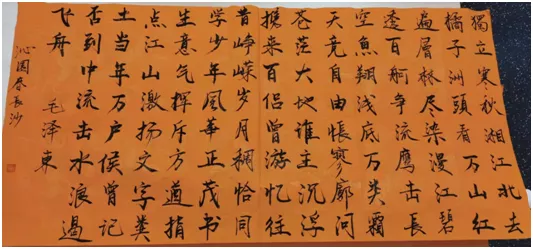 獨立寒秋湘江北去
橘子洲頭看万山红
遍層林尽染漫江碧
透百舸争流鹰击長
空鱼翔浅底万类霜
天竞自由悵寥廓问
苍茫大地谁主沉浮
携来百侣曾游忆往
昔峥嵘岁月稠恰同
学少年風華正茂书
生意气挥斥方遒指
点江山激扬文字粪
土当年万户侯曾记
否到中流击水浪遏
飞舟 毛泽東
沁园春長沙